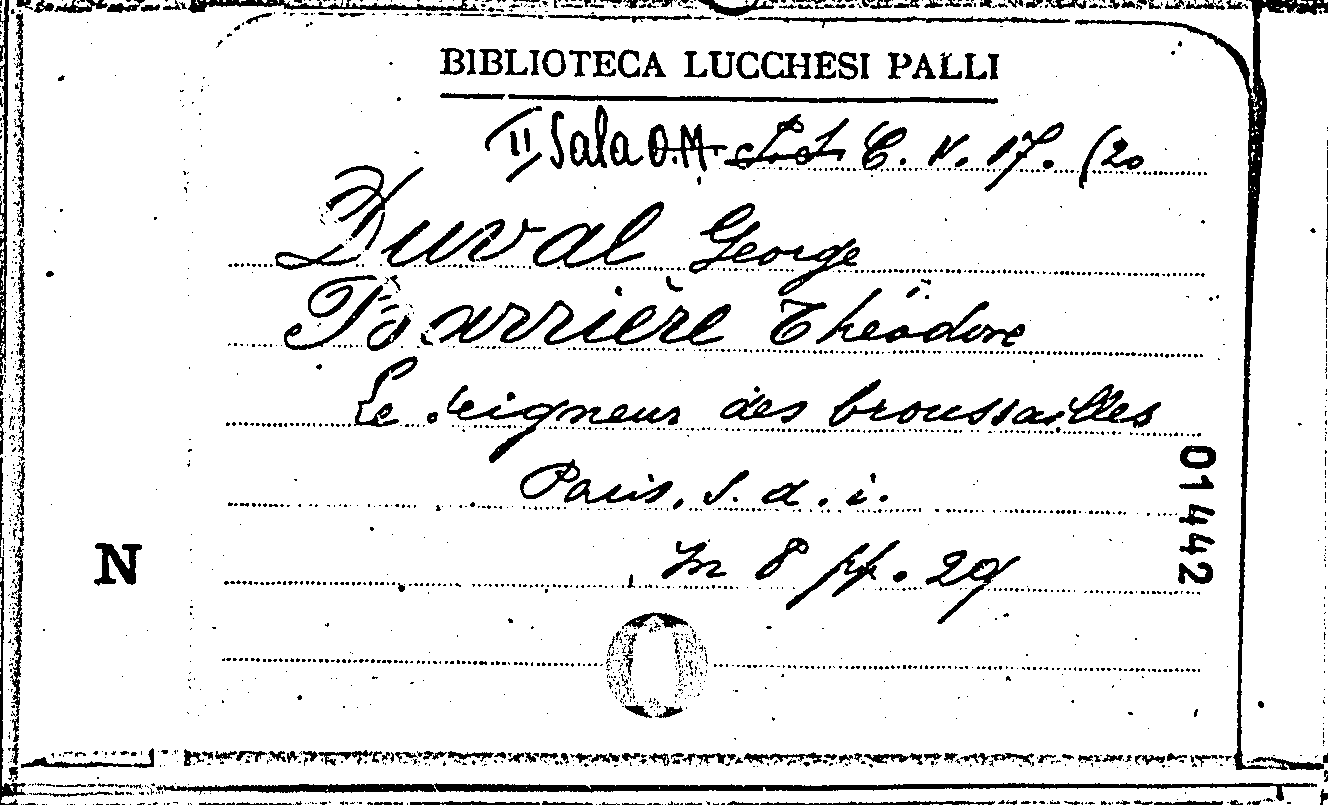 BIBLIOTECA LUCCHESI PALLI
II Sala O.M. C. V. 17. (20
Duval George
Théodore
Le Seigneur des broussailles
Paris, s. d. i.
In 8 pp. 29
N
01442